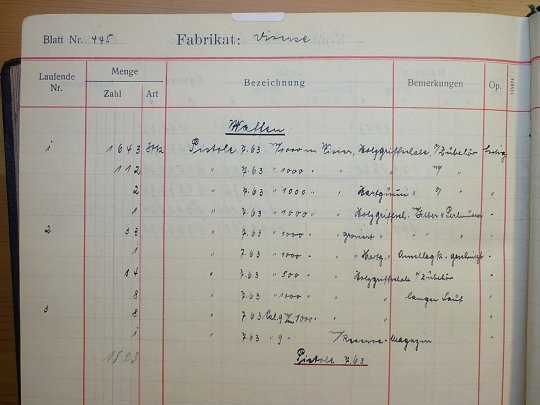 Blatt Nr. 445 Fabrikat: Diverse
Laufende Nr. Menge Bezeichnung Bemerkungen Op.
Zahl Art
Waffen.
1 1643 Stk Pistole 7,63 m/1000 m Visier, Holzgriffschale, m/Zubehör
112 " " 7.63 " 1000 " " " m/ "
2 " " 7.63 " 1000 " " Hartgummi " m/ "
1 " " 7.63 " 1000 " " Holzgriffsch. m/Silber & Perlmutter "
2 33 " " 7.63 " 1000 " graviert " " "
1 " " 7.63 " 1000 " " Hartg. " Anschlag k. geschnitzt "
14 " " 7.63 " 500 " " Holzgriffschale m/Zubehör "
8 " " 7.63 " 1000 " " langer Lauf "
3 8 " " 7.63 Cal. 9 1000 "
1 " " 7.63 " 9 " m/Reserve-Magazin "
1823 Pistole 7.63